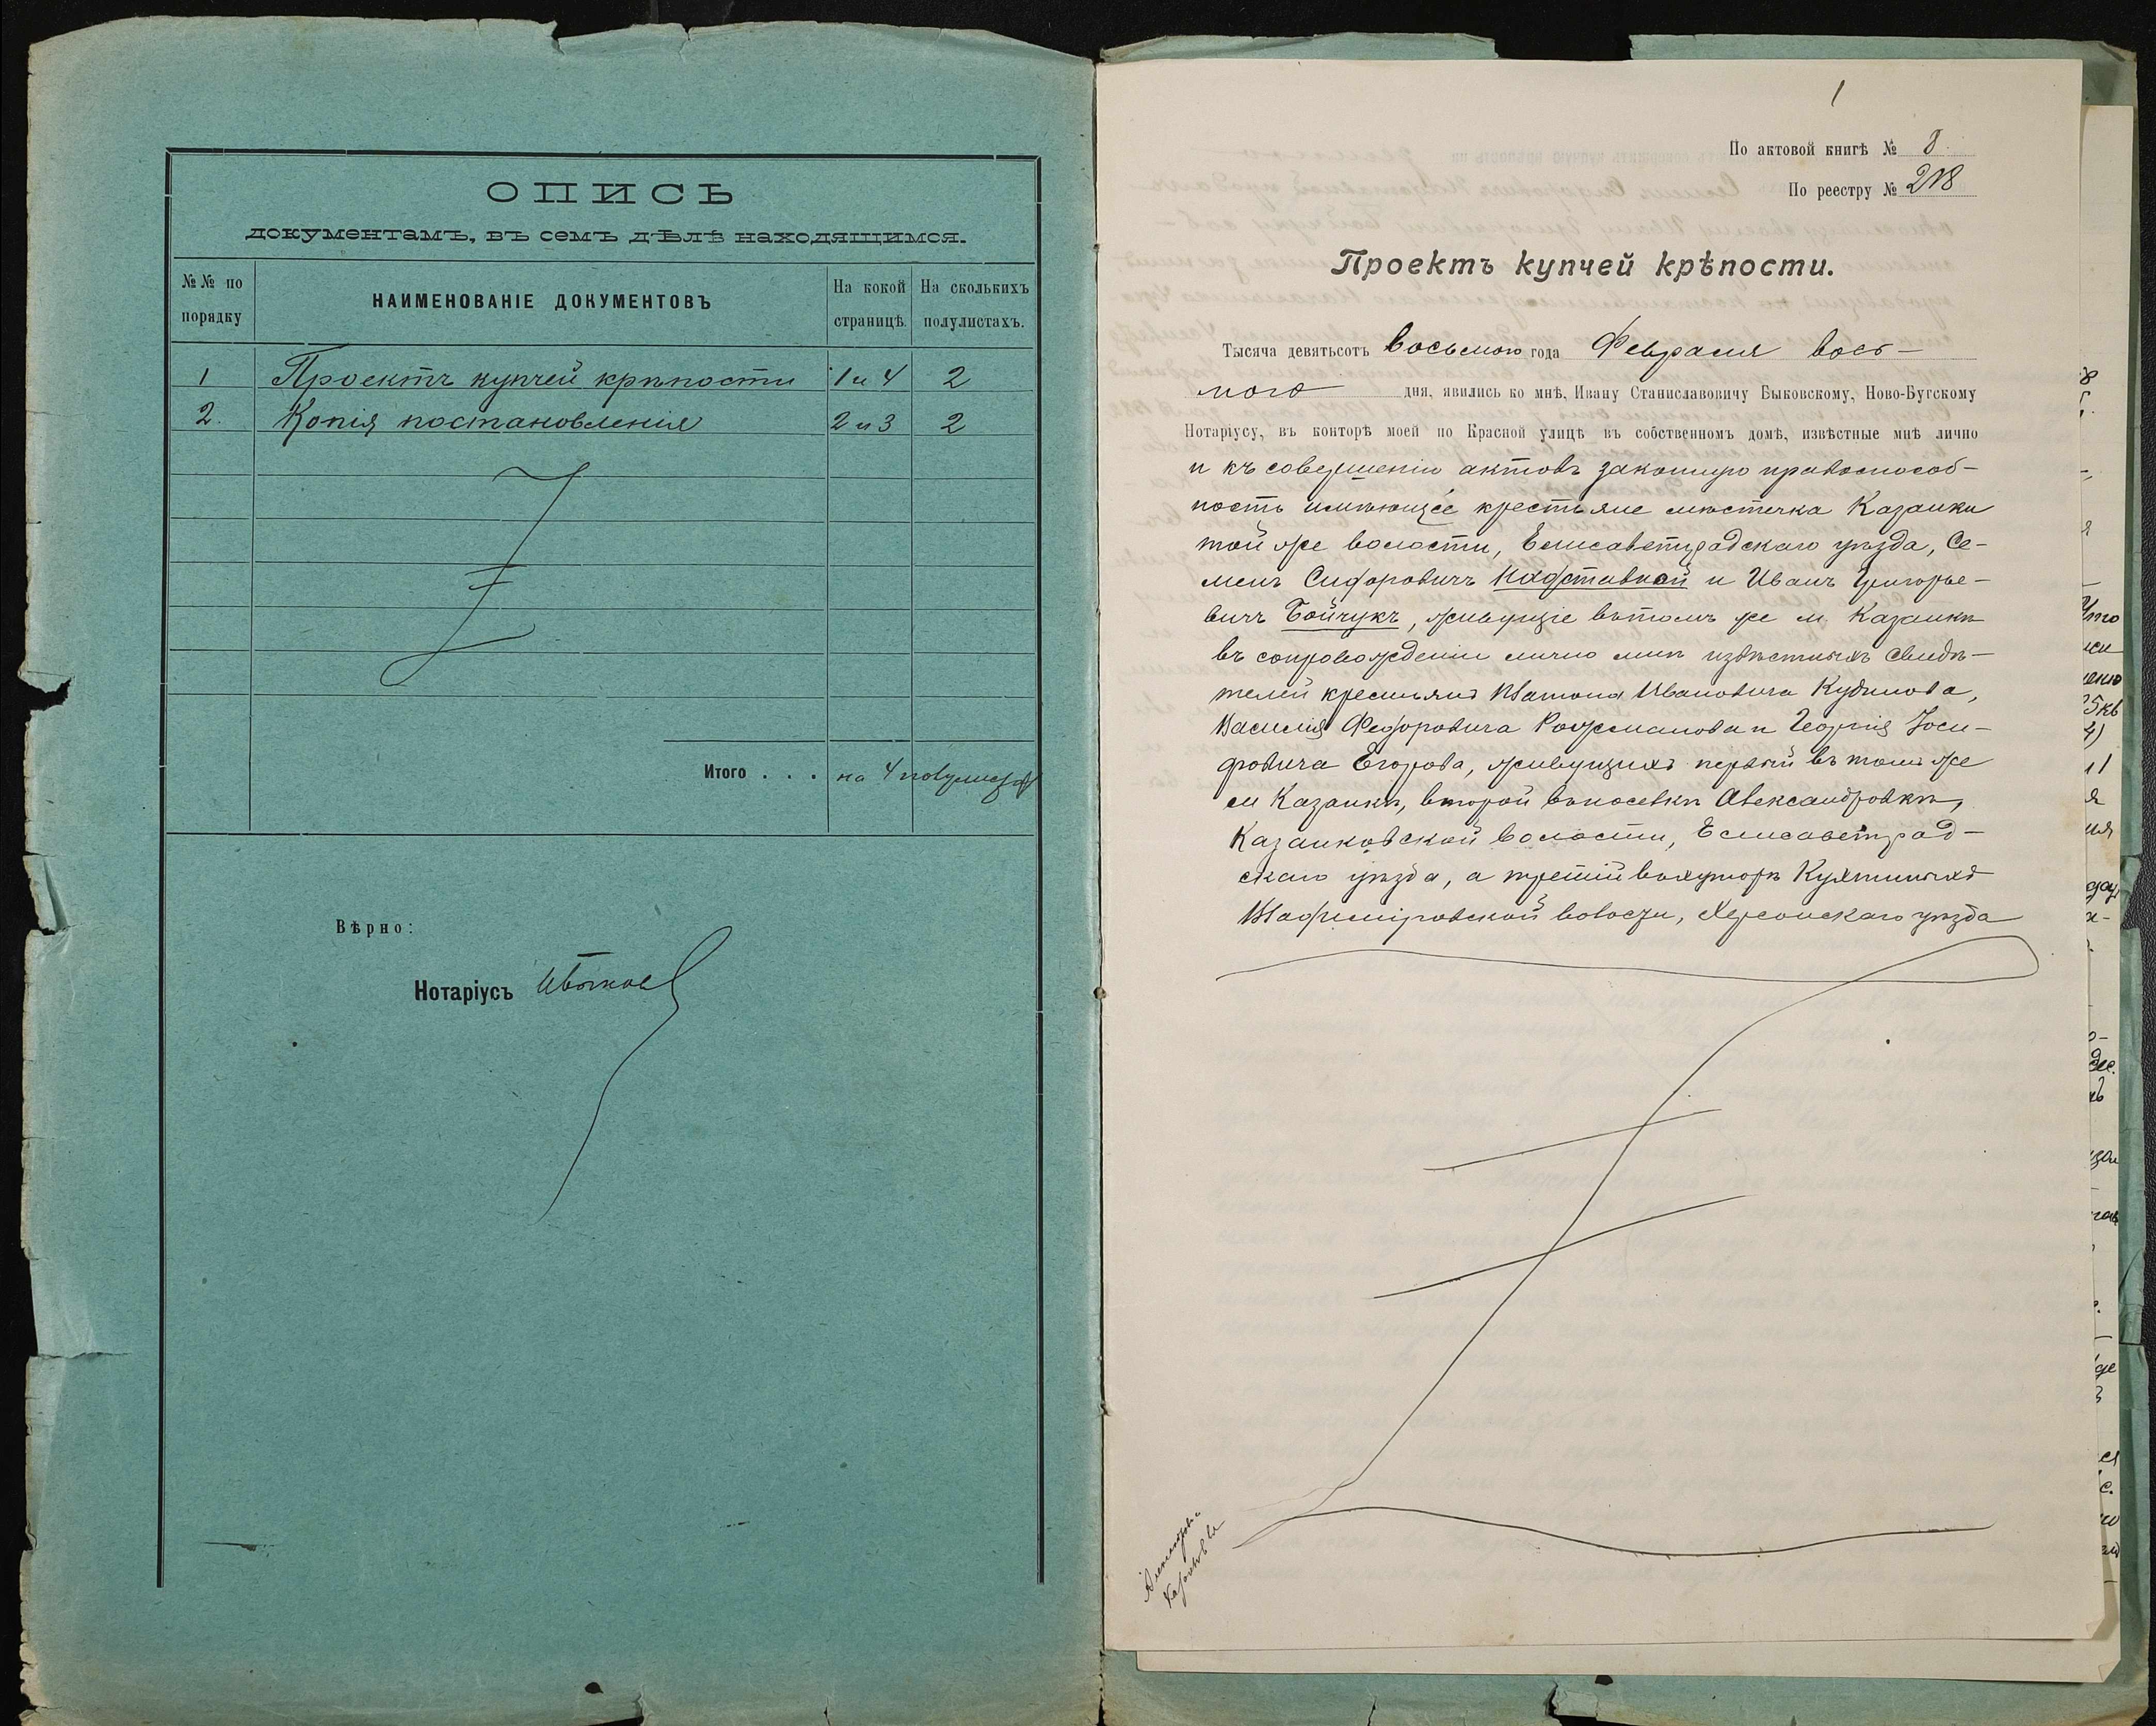 ОПИСЬ
документамъ, въ семъ дѣлѣ находящимся.
№№ по порядку
НАИМЕНОВАНІЕ ДОКУМЕНТОВЪ
На кокой страницѣ.
На сколькихъ полулистахъ.
1 Проектъ купчей крѣпости 1 и 4 2
2. Копія постановленія 2 и 3 2
Итого . . . на 4 полулистах
Вѣрно:
Нотаріусъ ИБыков
1
По актовой книгѣ № 8.
По реестру № 218
Проектъ купчей крѣпости.
Тысяча девятьсотъ восьмого года Февраля вось-
мого дня, явились ко мнѣ, Ивану Станиславовичу Быковскому, Ново-Бугскому
Нотаріусу, въ конторѣ моей по Красной улицѣ въ собственномъ домѣ, извѣстные мнѣ лично
и къ совершенію актовъ законную правоспособ-
ность имѣющіе крестьяне мѣстечка Казанки
той же волости, Елисаветградскаго уѣзда, Се-
менъ Сидоровичъ Надставной и Иванъ Григорье-
вичъ Бойчукъ, живущіе въ томъ же м. Казанкѣ
въ сопровожденіи лично мнѣ извѣстныхъ свидѣ-
телей крестьянъ Платона Ивановича Кудинова,
Василія Федоровича Рожманова и Георгія Іоси-
фовича Егорова, живущихъ первый въ томъ же
м Казанкѣ, второй въ поселкѣ Александровкѣ,
Казанковской волости, Елисаветград-
скаго уѣзда, а третій въ хуторѣ Кухтиныхъ
Владиміровской волости, Херсонскаго уѣзда